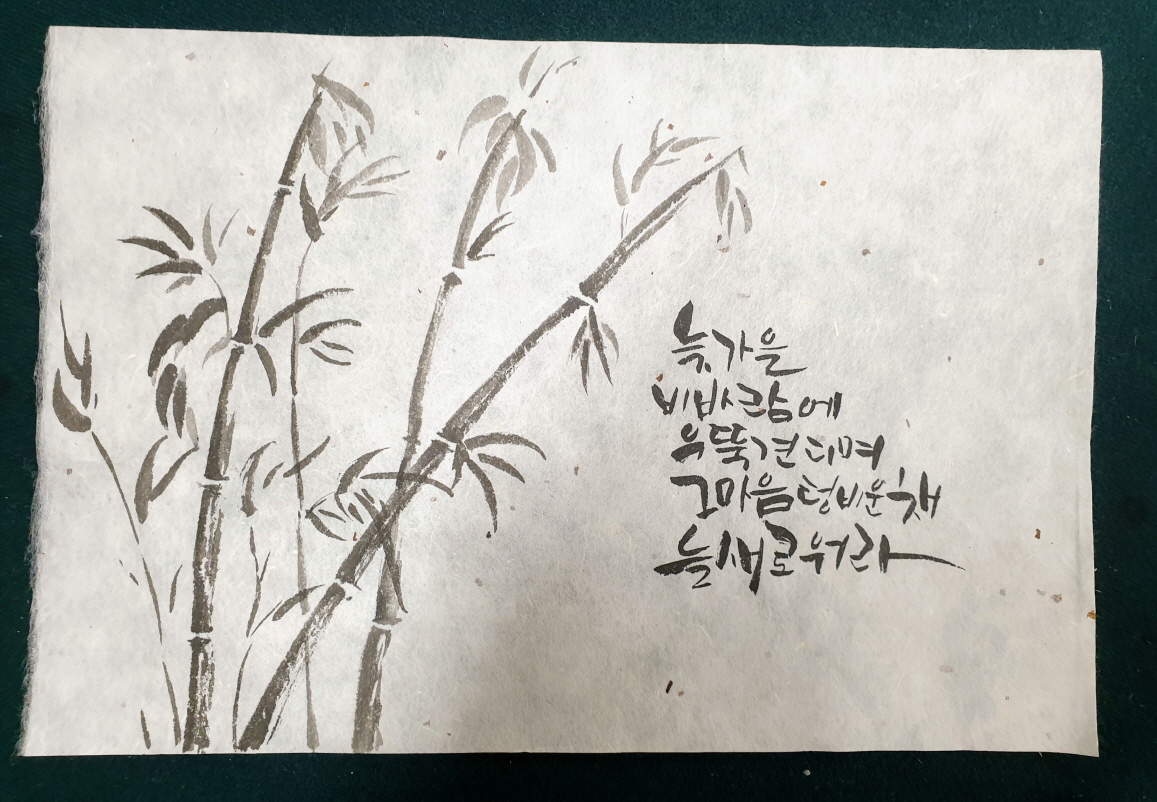 늦가을
비바람에
우뚝견디며
그마음텅비운챗
늘새로워라